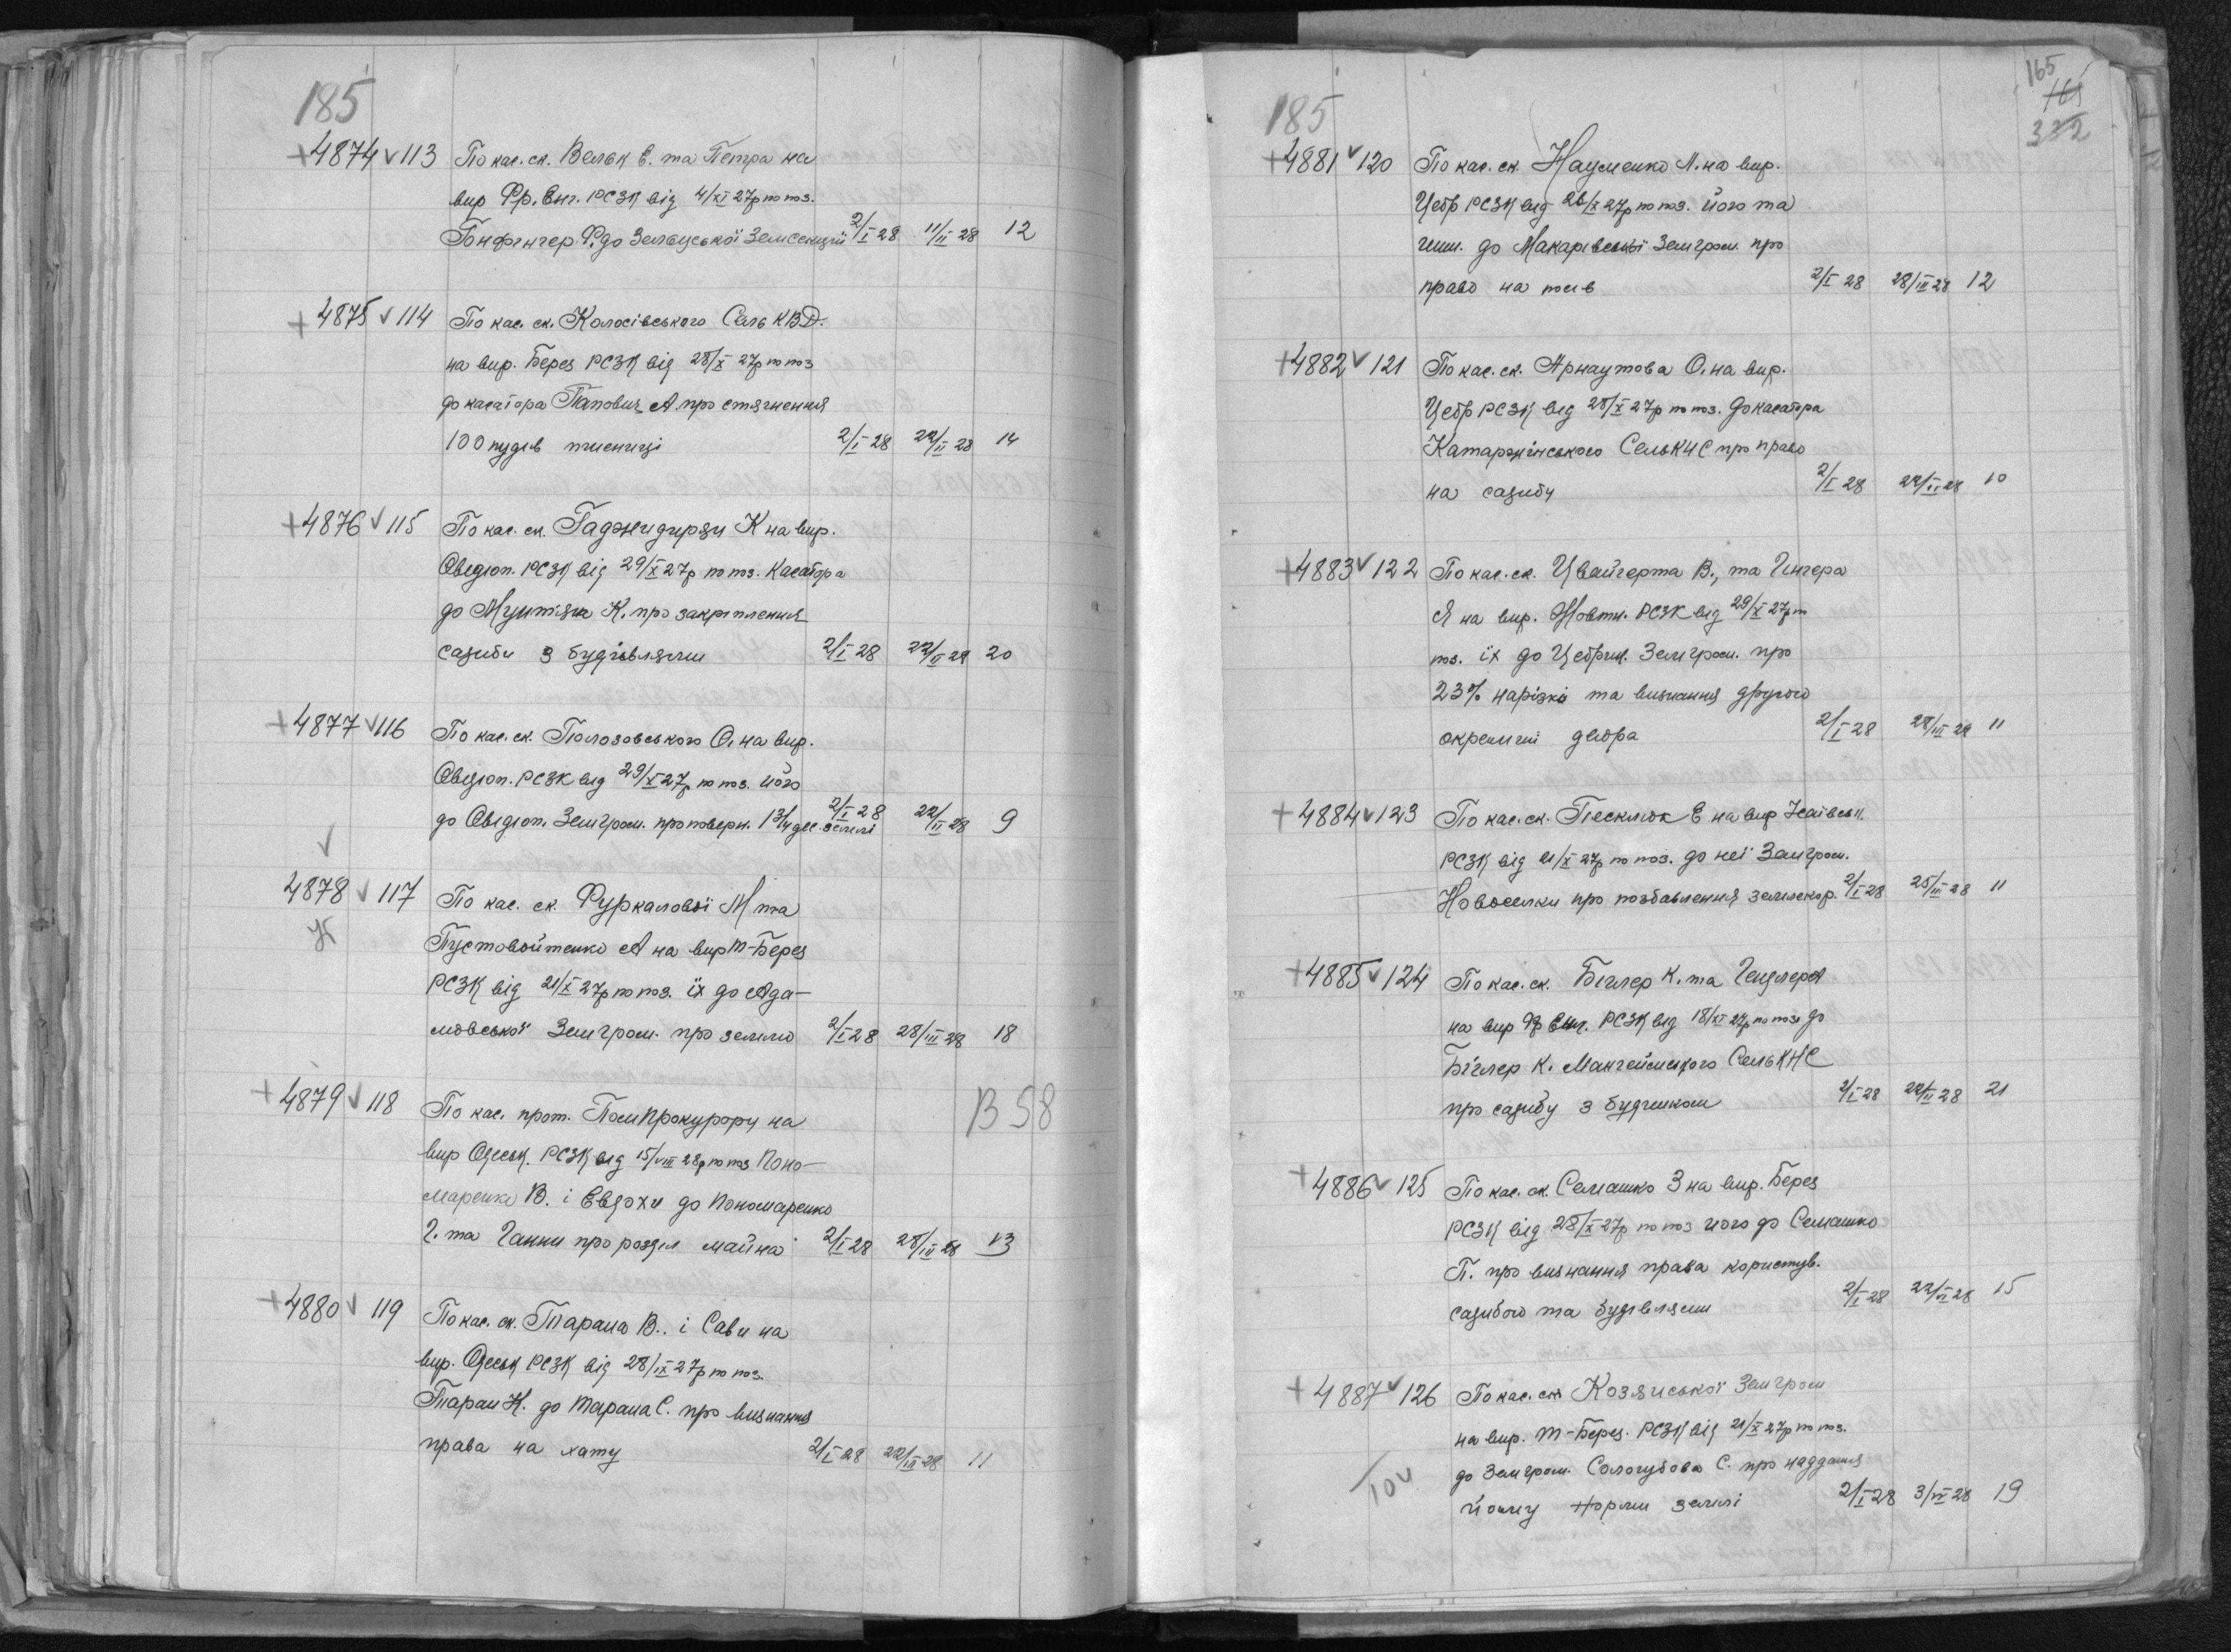 185
+4874 v 113 По кас. ск. Вельк Е. та Петра на
вир Фр. Енг. РСЗК від 4/XI 27р по поз.
Гонфінгер Ф. до Зельцської Земсекції 2/I 28 11/II 28 12
+4875 v 114 По кас. ск. Колосівського Сель КВД.
на вир. Берез РСЗК від 28/X 27р по поз
до касатора Папович А. про стягнення
100 пудів пшениці 2/I 28 22/II 28 14
+4876 v 115 По кас. ск. Гаджидирзи К на вир.
Овідіоп. РСЗК від 29/X 27р по поз. Касатора
до Мунтяна К. про закріплення
садиби з будівлями 2/I 28 22/II 28 20
+4877 v 116 По кас. ск. Полозовського О. на вир.
Овідіоп. РСЗК від 29/X 27р по поз. його
до Овідіоп. Земгром. про поверн. 1 3/4 дес. землі 2/I 28 22/II 28 9
v
4878 v 117 По кас. ск. Фуркалової М та
Пустовойтенко А на вир Т-Берез
РСЗК від 21/X 27р по поз. їх до Ада-
мовської Земгром. про землю 2/I 28 28/III 28 18
+4879 v 118 По кас. прот. Помпрокурору на
В 58
вир Одеськ. РСЗК від 15/VIII 28р по поз Поно-
маренко В. і Евдохи до Пономаренко
Г. та Ганни про розділ майна 2/I 28 28/III 28 13
+4880 v 119 По кас. ск. Тарана В. і Сави на
вир. Одеськ РСЗК від 28/IX 27р по поз.
Таран К. до Тарана С. про визнання
права на хату 2/I 28 22/III 28 11
165
165
332
185
+4881 v 120 По кас. ск. Науменко Л. на вир.
Цебр РСЗК від 26/X 27р по поз. його та
инш. до Макарівської Земгром. про
право на посів 2/I 28 28/III 28 12
+4882 v 121 По кас. ск. Арнаутова О. на вир.
Цебр РСЗК від 28/X 27р по поз. до касатора
Катаржинського СельКНС про право
на садибу 2/I 28 22/II 28 10
+4883 v 122 По кас. ск. Цвайгерта В., та Ингера
Я на вир. Жовтн. РСЗК від 29/X 27р по
поз. їх до Цебрик. Земгром. про
23% нарізки та визнання другого
окремим двора 2/I 28 28/III 28 11
+4884 v 123 По кас. ск. Песклюк Е на вир Ісаївськ.
РСЗК від 21/X 27р по поз. до неї Земгром.
Новоселки про позбавлення землекор. 2/I 28 25/III 28 11
+4885 v 124 По кас. ск. Біглер К. та Гецлера
на вир Фр Енг. РСЗК від 18/XI 27р по поз до
Біглер К. Мангеймського СельКНС
про садибу з будинком 2/I 28 22/II 28 21
+4886 v 125 По кас. ск. Семашко З на вир. Берез
РСЗК від 28/X 27р по поз його до Семашко
П. про визнання права користув.
садибою та будівлями 2/I 28 22/VI 28 15
+4887 v 126 По кас. ск Козянської Земгром
на вир. Т-Берез. РСЗК від 21/X 27р по поз.
до Земгром. Сологубова С. про наддання
йому норми землі 2/I 28 3/VI 28 19
10 v